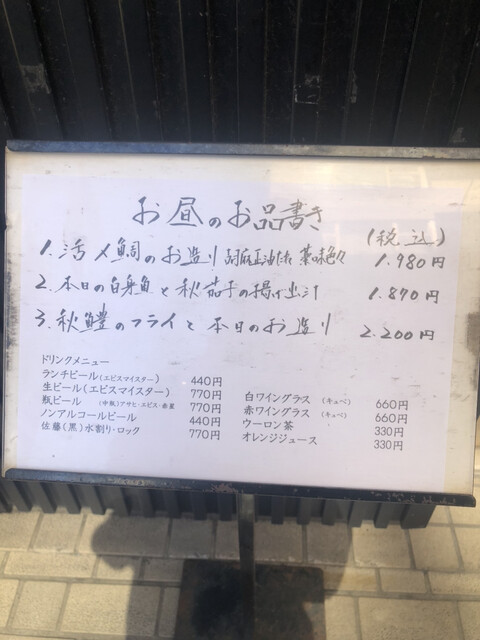 お昼のお品書き
(税込)
1.活〆鯛のお造り 胡麻正油だれ 薬味色々 1.980円
2.本日の白身魚と秋茄子の揚げ出汁 1.870円
3.秋鱧のフライと本日のお造り 2.200円
ドリンクメニュー
ランチビール(エビスマイスター) 440円
生ビール(エビスマイスター) 770円
瓶ビール (中瓶)アサヒ・エビス・赤星 770円
ノンアルコールビール 440円
佐藤(黒)水割り・ロック 770円
白ワイングラス (キュベ) 660円
赤ワイングラス (キュベ) 660円
ウーロン茶 330円
オレンジジュース 330円